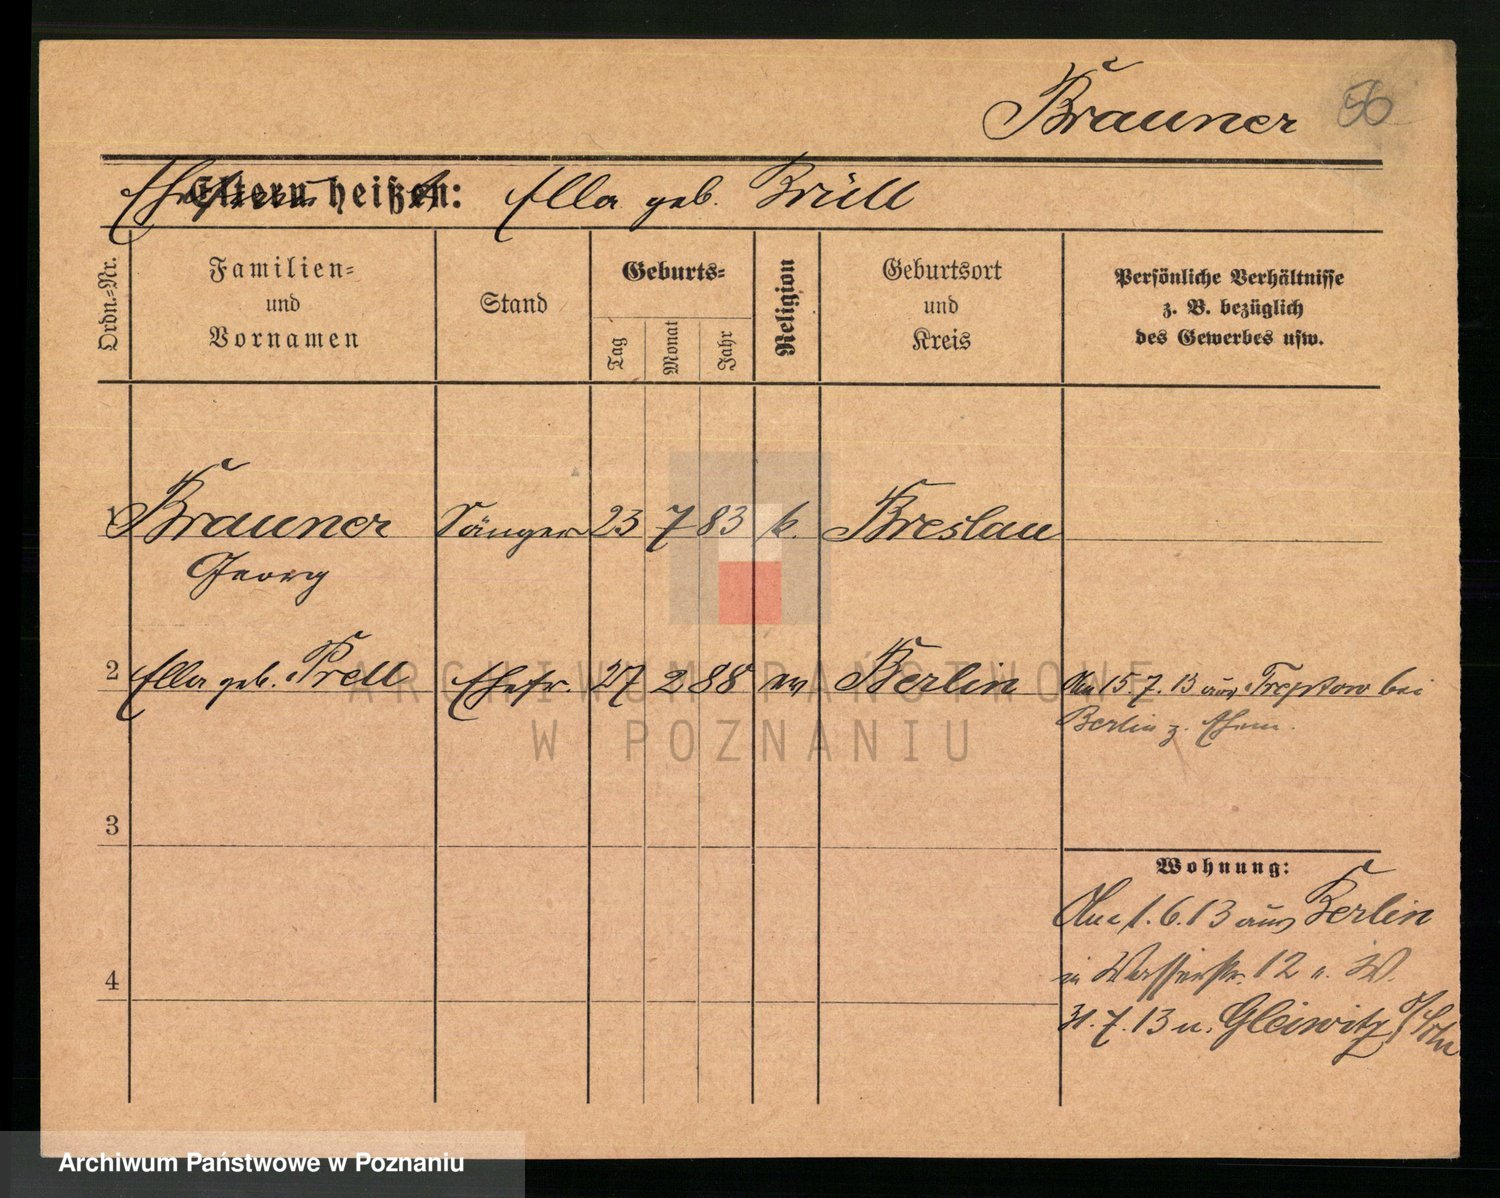 Brauner 56
Eltern heißen: Ella geb. Brüll
Ordn.-Nr.
Familien-
und
Vornamen
Stand
Geburts-
Tag
Monat
Jahr
Religion
Geburtsort
und
Kreis
Persönliche Verhältnisse
z. B. bezüglich
des Gewerbes usw.
1 Brauner Sänger 23 7 83 k. Breslau
Georg
2 Ella geb. Prell Ehefr. 27 2 88 ev Berlin An 15. 7. 13 aus Treptow bei
Berlin z. Ehem.
3
4
Wohnung:
An 1. 6. 13 aus Berlin
in Wasserstr. 12 b. W.
31. 7. 13 n. Gleiwitz
ARCHIWUM PAŃSTWOWE
W POZNANIU
Archiwum Państwowe w Poznaniu